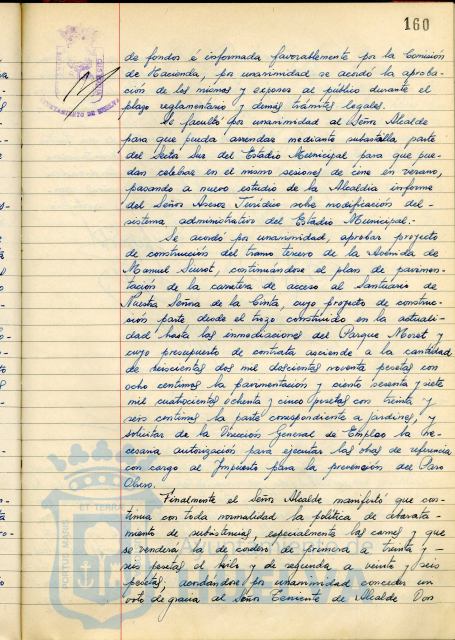 160
AYUNTAMIENTO DE HUELVA
de fondos é informada favorablemente por la Comisión
de Hacienda, por unanimidad se acordó la aproba-
ción de los mismos y exponer al público durante el
plazo reglamentario y demás trámites legales.
Se facultó por unanimidad al Señor Alcalde
para que pueda arrendar mediante subastilla parte
del Sector Sur del Estadio Municipal para que pue-
dan celebrar en el mismo sesiones de cine en verano,
pasando a nuevo estudio de la Alcaldía informe
del Señor Asesor Jurídico sobre modificación del
sistema administrativo del Estadio Municipal.-
Se acordó por unanimidad, aprobar proyecto
de construcción del tramo tercero de la Avenida de
Manuel Siurot, continuándose el plan de pavimen-
tación de la carretera de acceso al Santuario de
Nuestra Señora de la Cinta, cuyo proyecto de construc-
ción parte desde el trozo construido en la actuali-
dad hasta las inmediaciones del Parque Moret y
cuyo presupuesto de contrata asciende a la cantidad
de seiscientas dos mil doscientas noventa pesetas con
ocho centimos la pavimentación y ciento sesenta y siete
mil cuatrocientas ochenta y cinco pesetas con treinta y
seis centimos la parte correspondiente a jardines, y
solicitar de la Dirección General de Empleo la ne-
cesaria autorización para ejecutar las obras de referencia
con cargo al Impuesto para la prevención del Paro
Obrero.
Finalmente el Señor Alcalde manifestó que con-
tinua con toda normalidad la política de abarata-
miento de subsistencias, especialmente las carnes y que
se venderá la de cordero de primera a treinta y
seis pesetas el kilo y de segunda a veinte y seis
pesetas; acordándose por unanimidad conceder un
voto de gracia al Señor Teniente de Alcalde Don